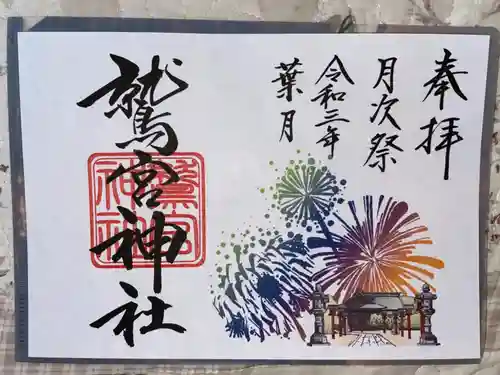 奉拝
月次祭
令和三年
葉月
鷲宮神社
鷲宮神社